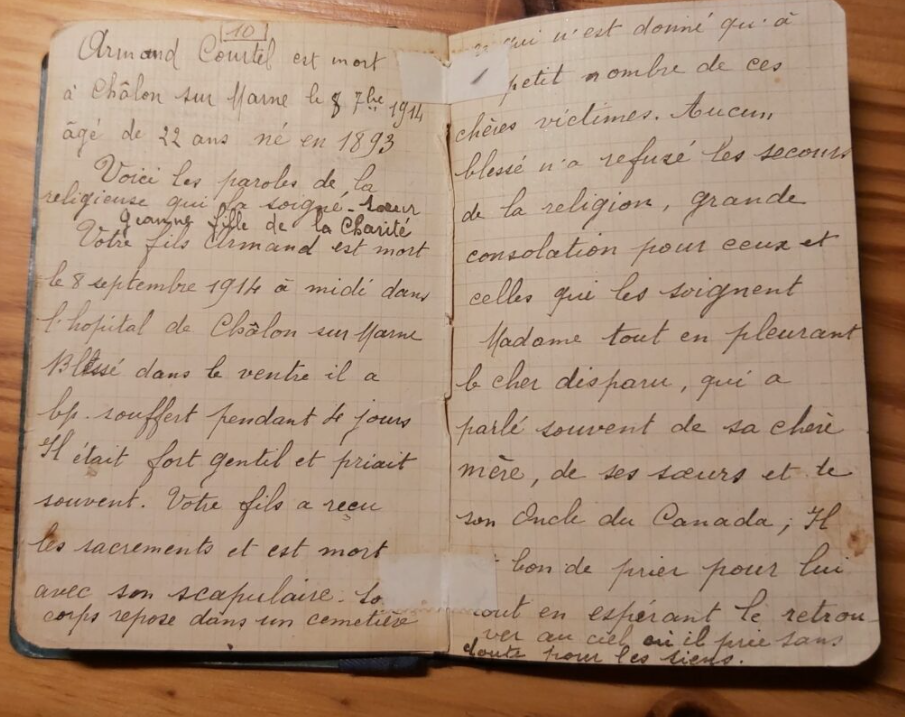 10
Armand Courtel est mort
à Châlon sur Marne le 8 7bre 1914
âgé de 22 ans né en 1893
Voici les paroles de la
religieuse qui l'a soigné - sœur
Jeanne fille de la Charité
Votre fils Armand est mort
le 8 septembre 1914 à midi dans
l'hopital de Châlon sur Marne
Blessé dans le ventre il a
bp. souffert pendant 4 jours
Il était fort gentil et priait
souvent. Votre fils a reçu
les sacrements et est mort
avec son scapulaire. So
corps repose dans un cemetière
qui n'est donné qu'à
petit nombre de ces
chères victimes. Aucun
blessé n'a refusé les secours
de la religion, grande
consolation pour ceux et
celles qui les soignent
Madame tout en pleurant
le cher disparu, qui a
parlé souvent de sa chère
mère, de ses sœurs et de
son Oncle du Canada ; Il
bon de prier pour lui
tout en espérant le retrou
ver au ciel où il prie sans
doute pour les siens.